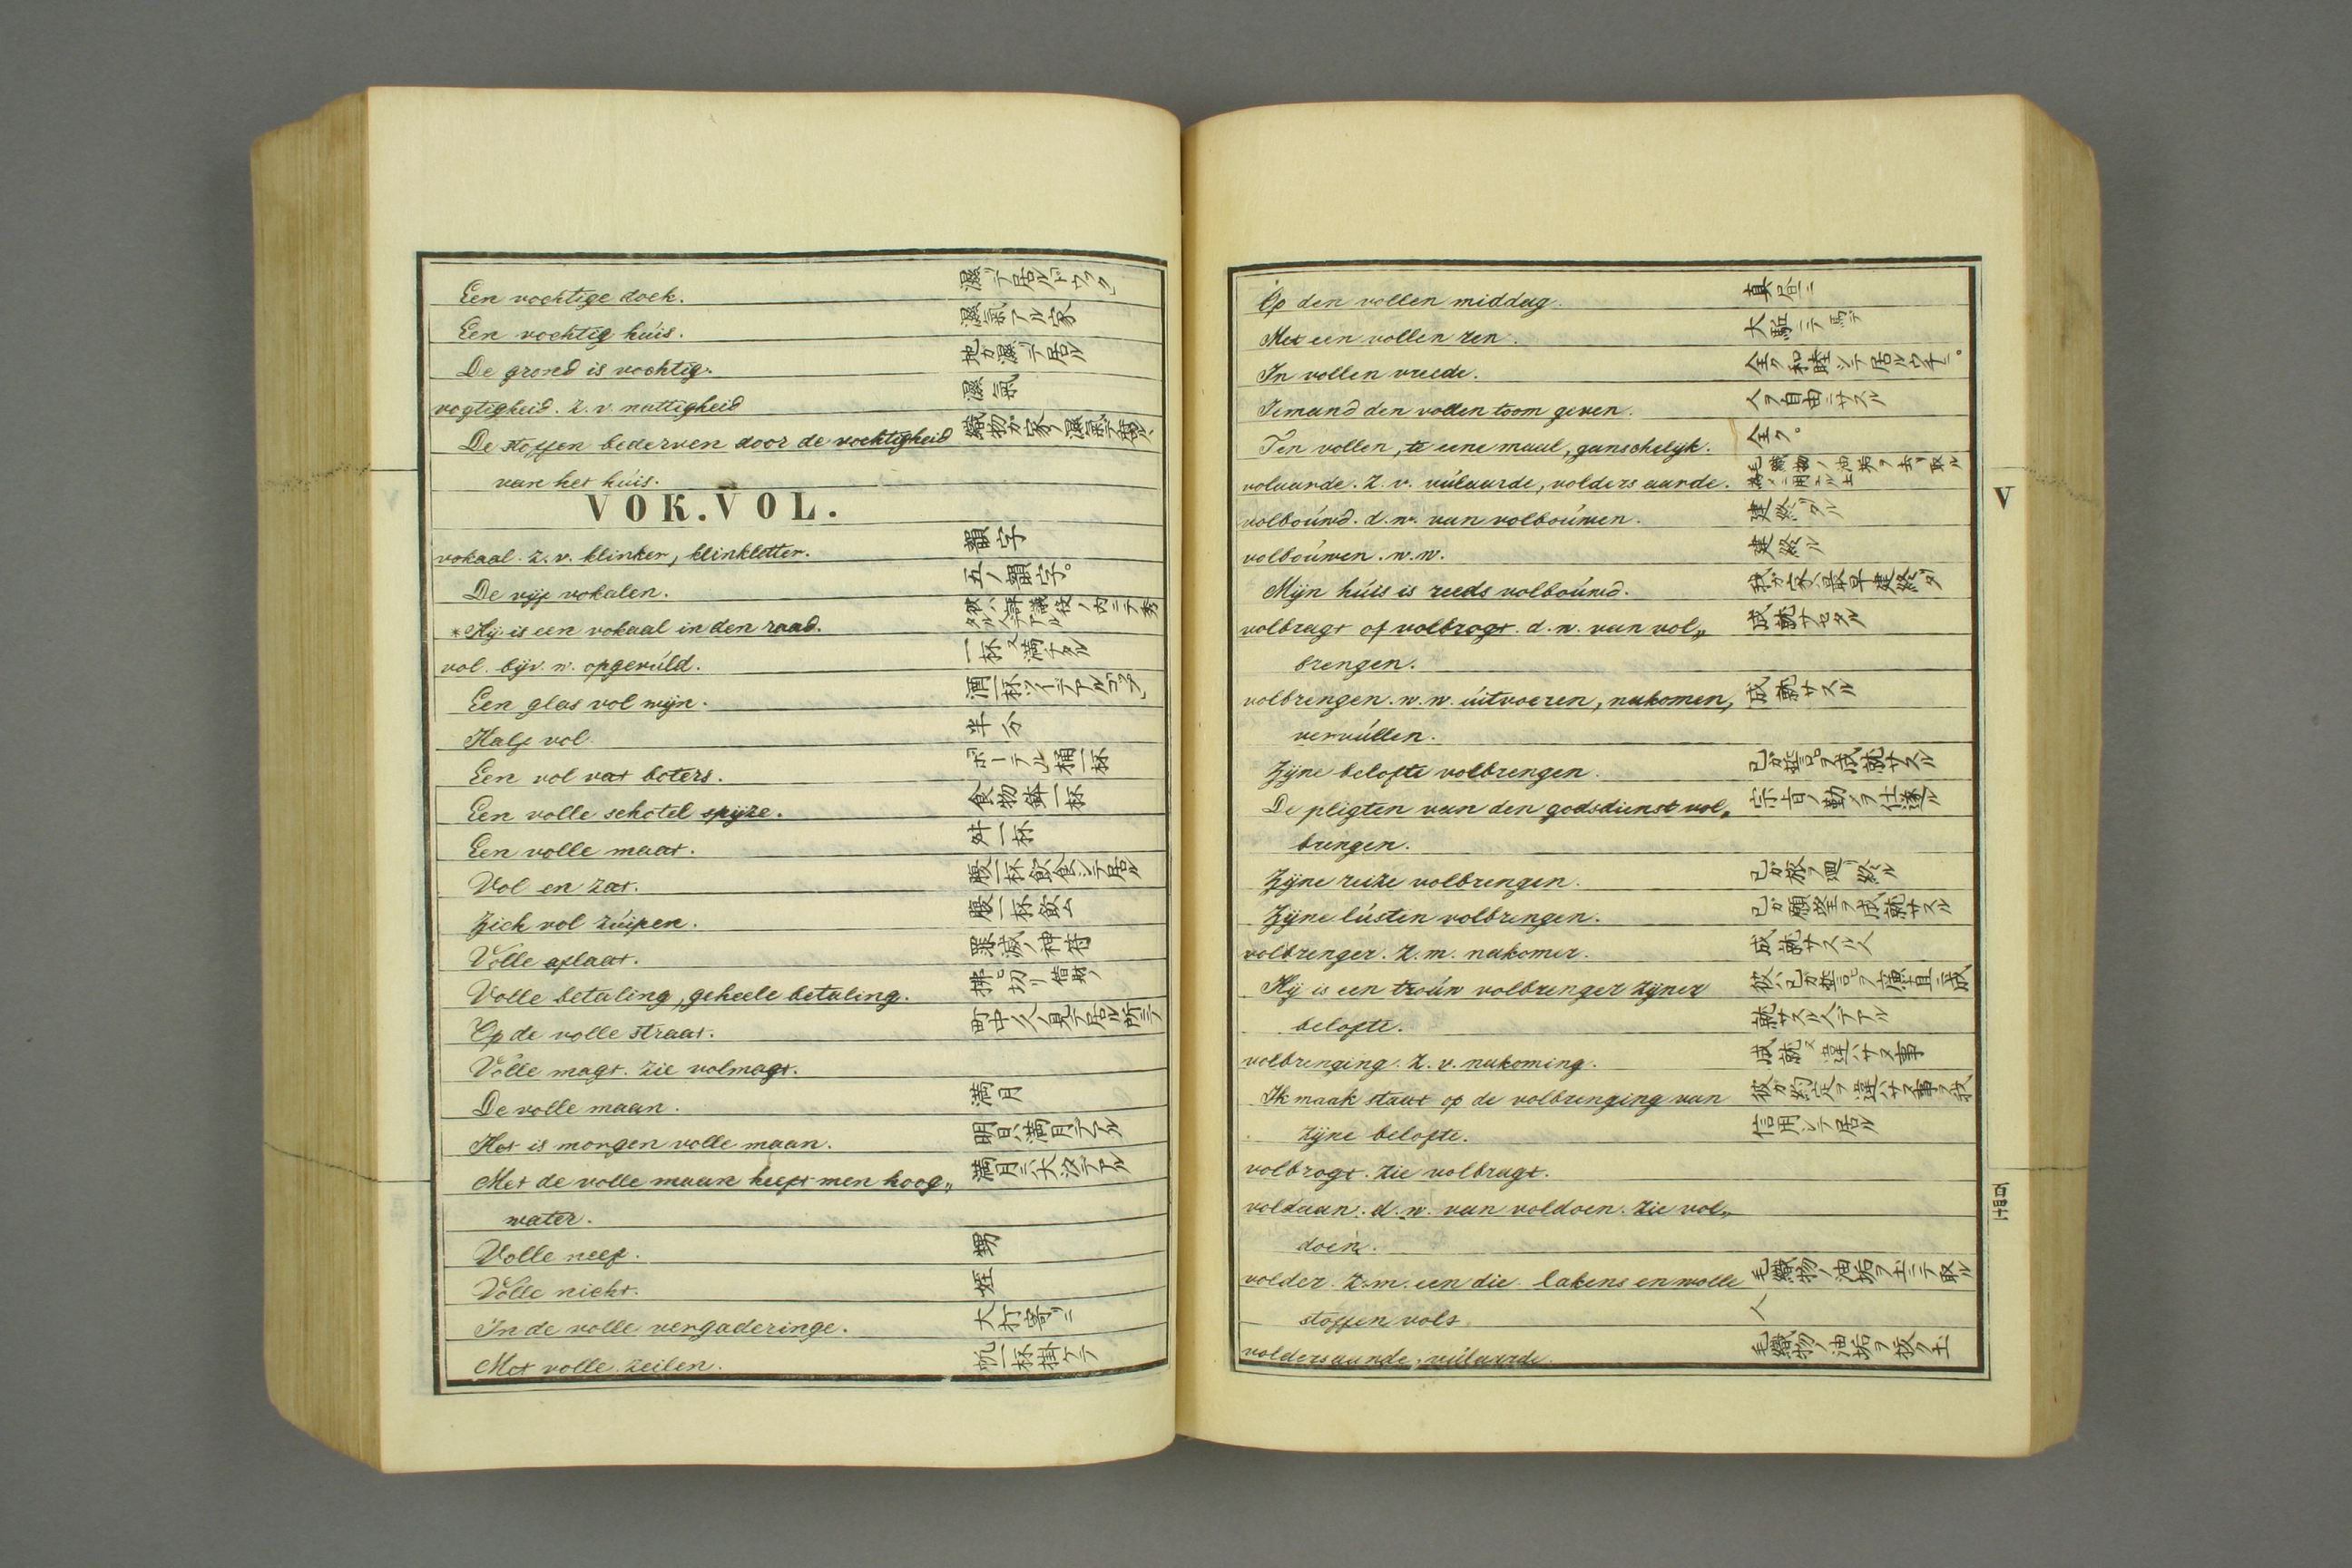 Een vochtige doek. 濕ヅテ居ル「ドウク」
Een vochtig húis. 濕氣アル家
De grond is vochtig. 地ガ濕ヅテ居ル
vogtigheid. z. v. nattigheid 濕氣
De stoffen bederven door de vochtigheid 織物ガ家ノ濕氣デ
van het húis.
VOK. VOL.
vokaal. z. v. klinker, klinkletter. 韻字
De vijf vokalen. 五ノ韻字。
* Hij is een vokaal in den raad. 彼ハ評議役ノ内ニテ秀タル人デアル
vol. bijv. w. opgevúld. 一杯又満チタル
Een glas vol wijn. 酒一杯ツイデアル「コップ」
Half vol. 半分
Een vol vat boters. 「ボーテル」桶一杯
Een volle schotel spijze. 食物鉢一杯
Een volle maat. 舛一杯
Vol en zat. 腹一杯飲食シテ居ル
Zich vol zúipen. 腹一杯飲ム
Volle aflaat. 罪滅ノ神符
Volle betaling, geheele betaling. 拂切リ借財ノ
Op de volle straat. 町中人ノ見テ居ル所ニテ
Volle magt. zie volmagt.
De volle maan. 満月
Het is morgen volle maan. 明日ハ満月デアル
Met de volle maan heeft men hoog„ 満月ニハ大汐デアル
water.
Volle neef. 甥
Volle nicht. 姪
In de volle vergaderinge. 大打寄リニ
Met volle zeilen. 帆一杯掛ケテ
Op den vollen middag. 真昼ニ
Met een vollen ren. 大駈ニテ馬デ
In vollen vreede. 全ク和睦シテ居ルウチニ。
Iemand den vollen toom geven. 人ヲ自由ニサスル
Ten vollen, te eene maal, ganschelijk. 全ク。
volaarde. z. v. vúlaarde, volders aarde. 毛織物ノ油垢ヲ去リ取ル為ニ用フル土
volboúwd. d. w. van volboúwen. 建終リタル
volboúwen. w. w. 建終ル
Mijn húis is reeds volboúwd. 我ガ家ハ最早建終リタ
volbragt of volbrogt. d. w. van vol„ 成就サセタル
brengen.
volbrengen. w. w. úitvoeren, nakomen, 成就サスル
vervúllen.
Zijne belofte volbrengen. 己ガ誓言ヲ成就サスル
De pligten van den godsdienst vol„ 宗旨ノ勤メヲ仕遂ル
brengen.
Zijne reize volbrengen. 己ガ旅ヲ廻リ終ル
Zijne lústen volbrengen. 己ガ願望ヲ成就サスル
volbrenger. z. m. nakomer. 成就サスル人
Hij is een troúw volbrenger zijner 彼ハ己ガ誓言ヲ廉直ニ成
belofte. 就サスル人デアル
volbrenging. z. v. nakoming. 成就又違ハサヌ事
Ik maak staat op de volbrenging van 彼ガ約定ヲ違ハサヌ事ヲ我
zijne belofte. 信用シテ居ル
volbrogt. zie volbragt.
voldaan. d. w. van voldoen. zie vol„
doen.
volder. z. m. een die lakens en wolle 毛織物ノ油垢ヲ土ニテ取ル
stoffen vols. 人
voldersaarde, vúlaarde. 毛織物ノ油垢ヲ抜ク土
V
百四十